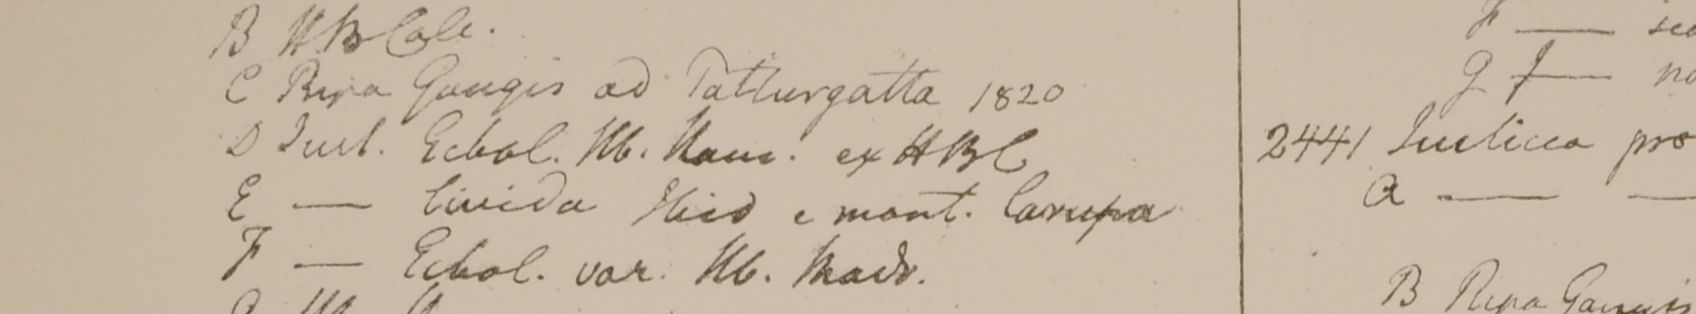 B HB Calc.
C Ripa Gangis ad Patturgatta 1820
D Just. Ecbol. Hb. Ham. ex HBC
E — livida Heid e mont. Carupa
F — Ecbol. var. Hb. Madr.
F —
G J —
2441 Justicia pro
a — —
B Ripa Gangis